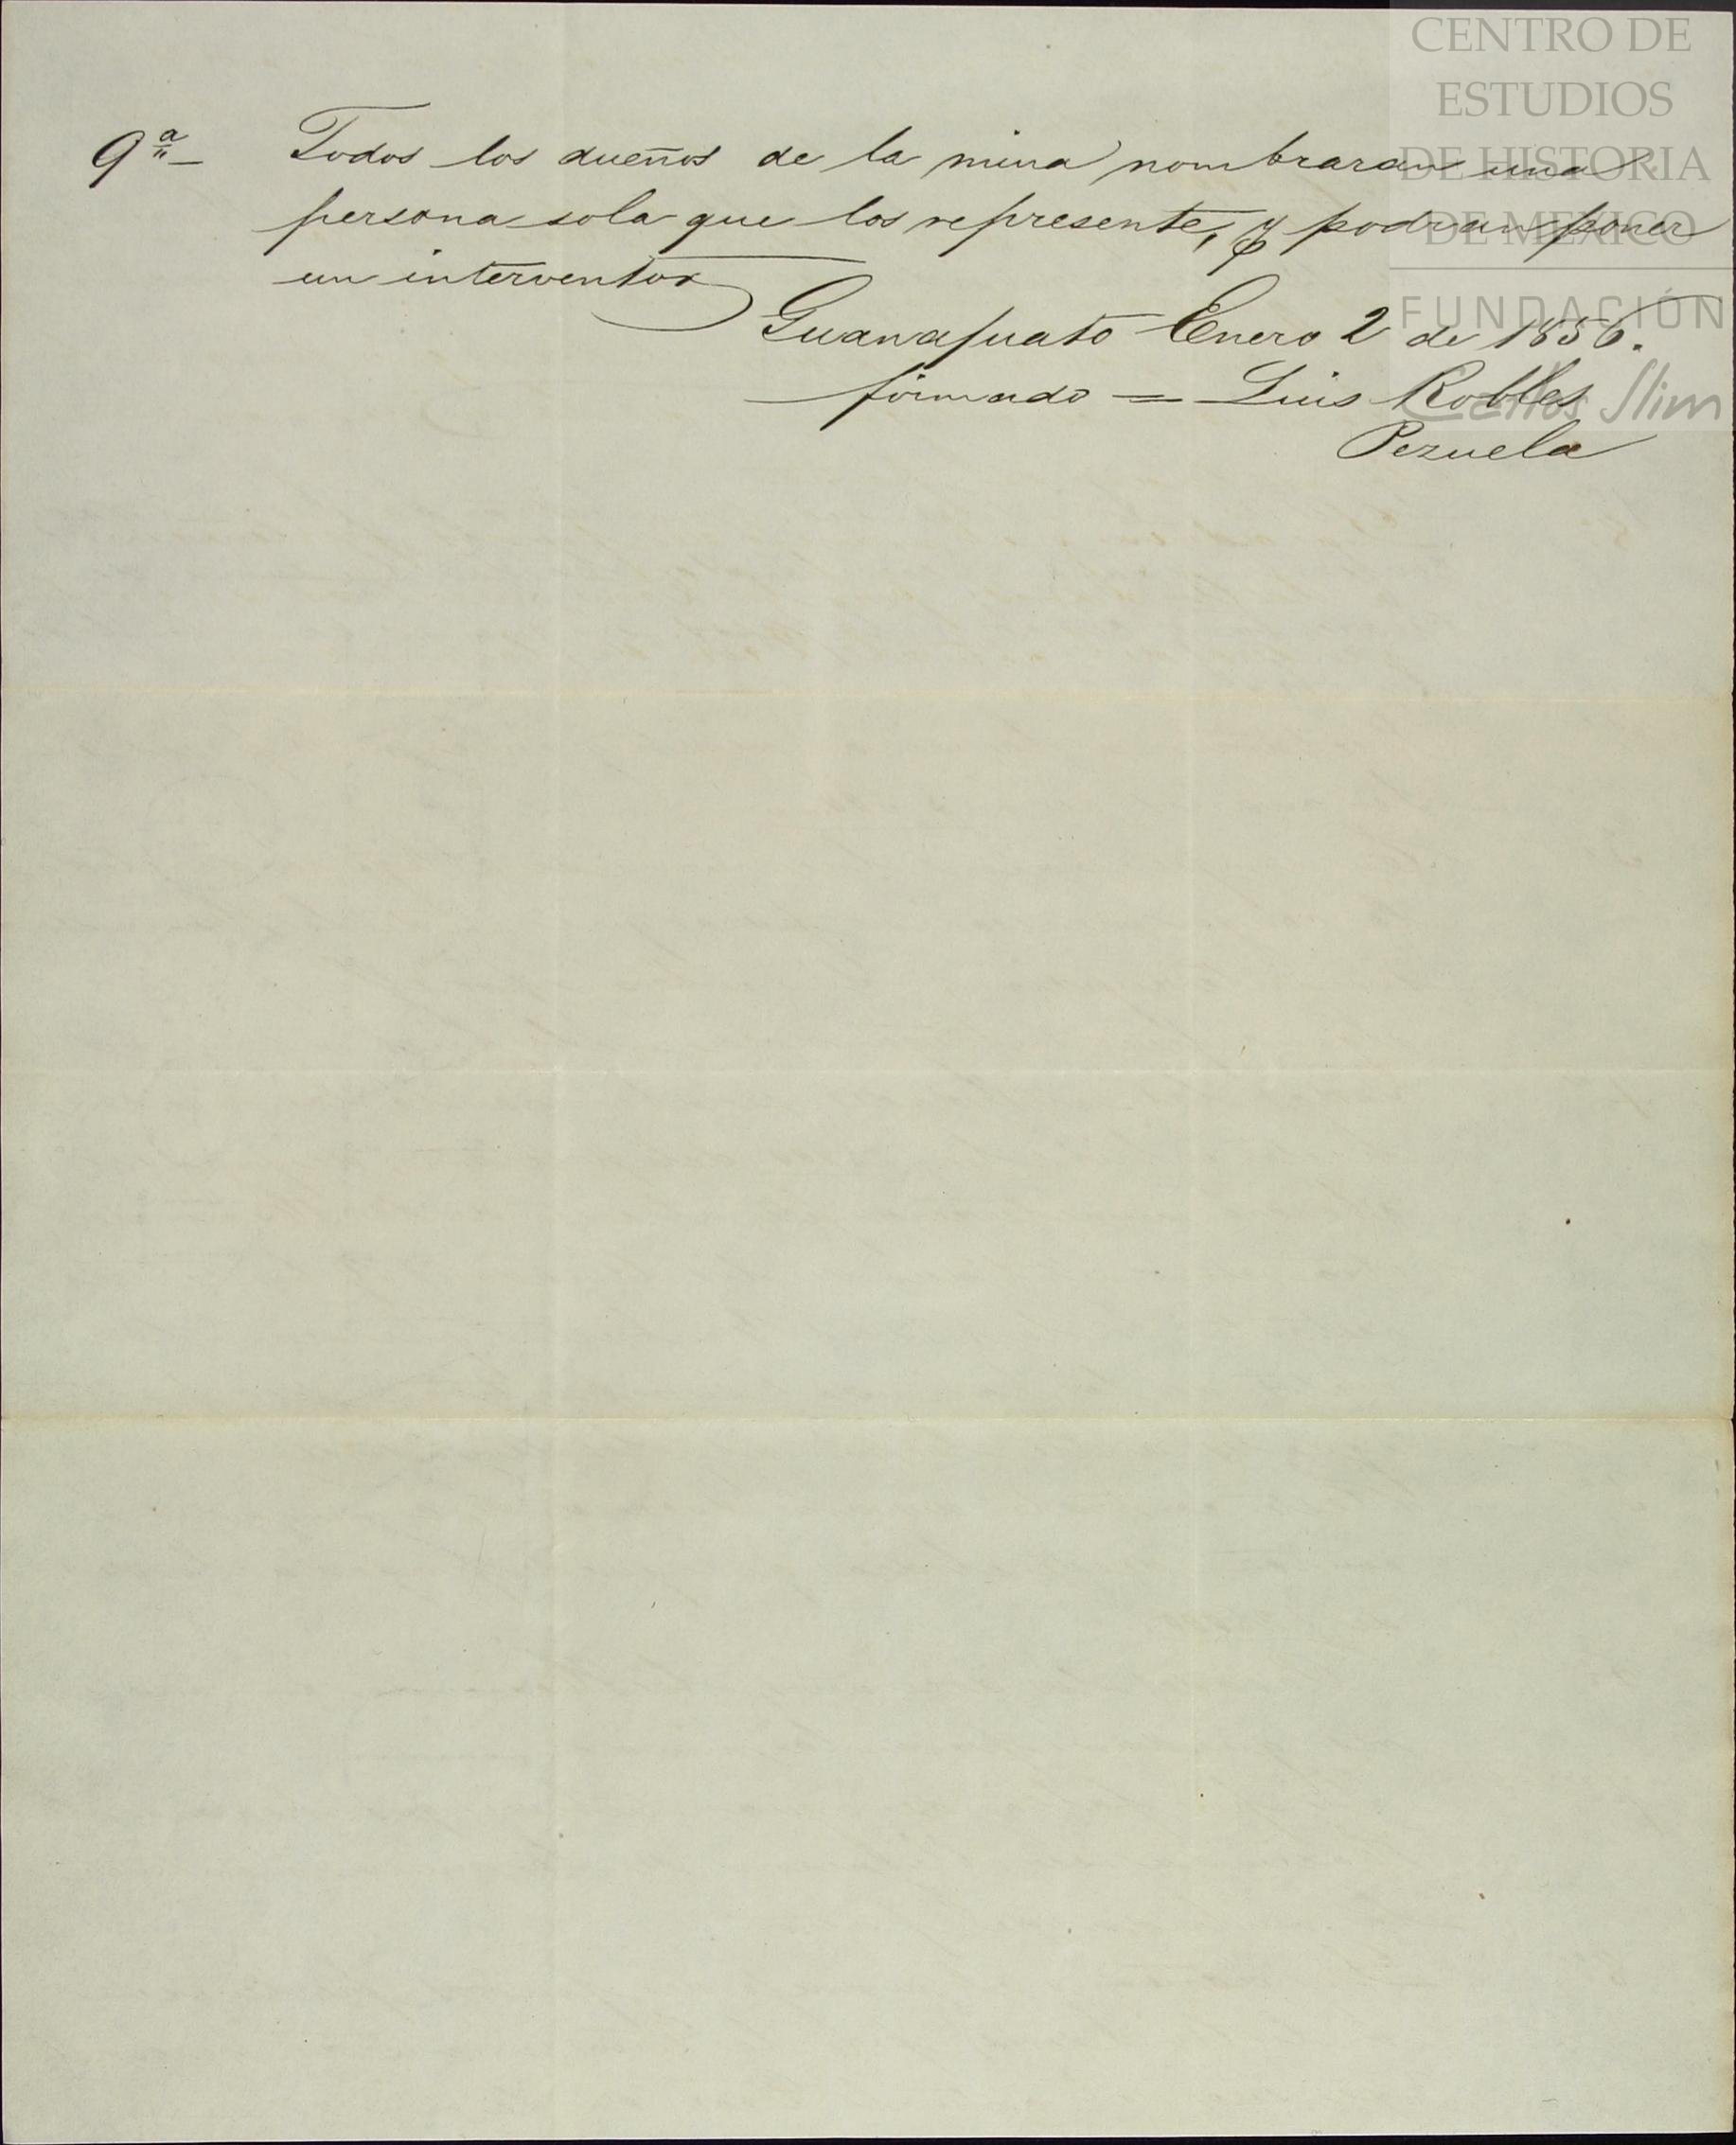 CENTRO DE
ESTUDIOS
DE HISTORIA
DE MEXICO
FUNDACIÓN
Carlos Slim
9ª- Todos los dueños de la mina nombraran una
persona sola que los represente, y podran poner
un interventor
Guanajuato Enero 2 de 1856.
firmado = Luis Robles
Pezuela